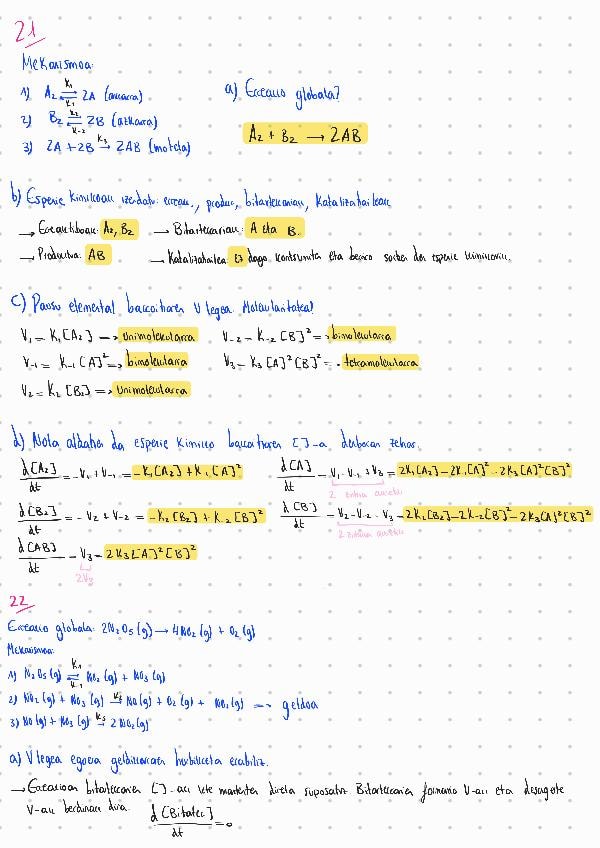 21
Mekanismoa:
1) A₂ ⇌ 2A (azkarra) K₁ K₋₁
a) Erreakzio globala?
2) B₂ ⇌ 2B (azkarra) K₂ K₋₂
A₂ + B₂ → 2AB
3) 2A + 2B → 2AB (motela) K₃
b) Espezie kimikoak izendatu: erreak., produk, bitartekariak, katalizatzaileak
→ Erreaktiboak: A₂, B₂ → Bitartekariak: A eta B.
→ Produktua: AB → Katalizatzailea: Ez dago kontsumitu eta berriro sortzen den espezie kimikorik.
c) Pausu elemental bakoitzaren V legea. Molekularitatea?
V₁ = K₁[A₂] → Unimolekularra V₋₂ = K₋₂[B]² → bimolekularra
V₋₁ = K₋₁[A]² → bimolekularra V₃ = K₃[A]²[B]² = tetramolekularra
V₂ = K₂[B₂] → Unimolekularra
d) Nola aldatzen da espezie kimiko bakoitzaren []-a denboran zehar.
d[A₂]/dt = -V₁ + V₋₁ = -K₁[A₂] + K₋₁[A]² d[A]/dt = V₁ - V₋₁ - V₃ = 2K₁[A₂] - 2K₋₁[A]² - 2K₃[A]²[B]²
d[B₂]/dt = -V₂ + V₋₂ = -K₂[B₂] + K₋₂[B]² d[B]/dt = V₂ - V₋₂ - V₃ = 2K₂[B₂] - 2K₋₂[B]² - 2K₃[A]²[B]²
d[AB]/dt = V₃ = 2K₃[A]²[B]²
2V₃
22
Erreakzio globala: 2N₂O₅(g) → 4NO₂(g) + O₂(g)
Mekanismoa:
1) N₂O₅(g) ⇌ NO₂(g) + NO₃(g) K₁ K₋₁
2) NO₂(g) + NO₃(g) → NO(g) + O₂(g) + NO₂(g) K₂ → geldoa
3) NO(g) + NO₃(g) → 2NO₂(g) K₃
a) V legea egoera geldikorraren hurbilketa erabiliz.
→ Erreakzioan bitartekariaren []-ak kte mantentzen direla suposatuz. Bitartekariaren formazio V-ak eta desagerte
V-ak berdinak dira. d[Bitartek]/dt = 0